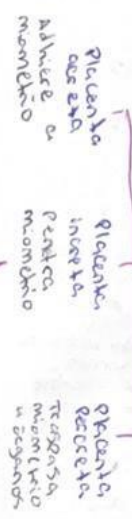 Placenta
acreta
Adhiere a
miometrio
Placenta
increta
Penetra
miometrio
Placenta
percreta
Traspasa
miometrio
u órganos